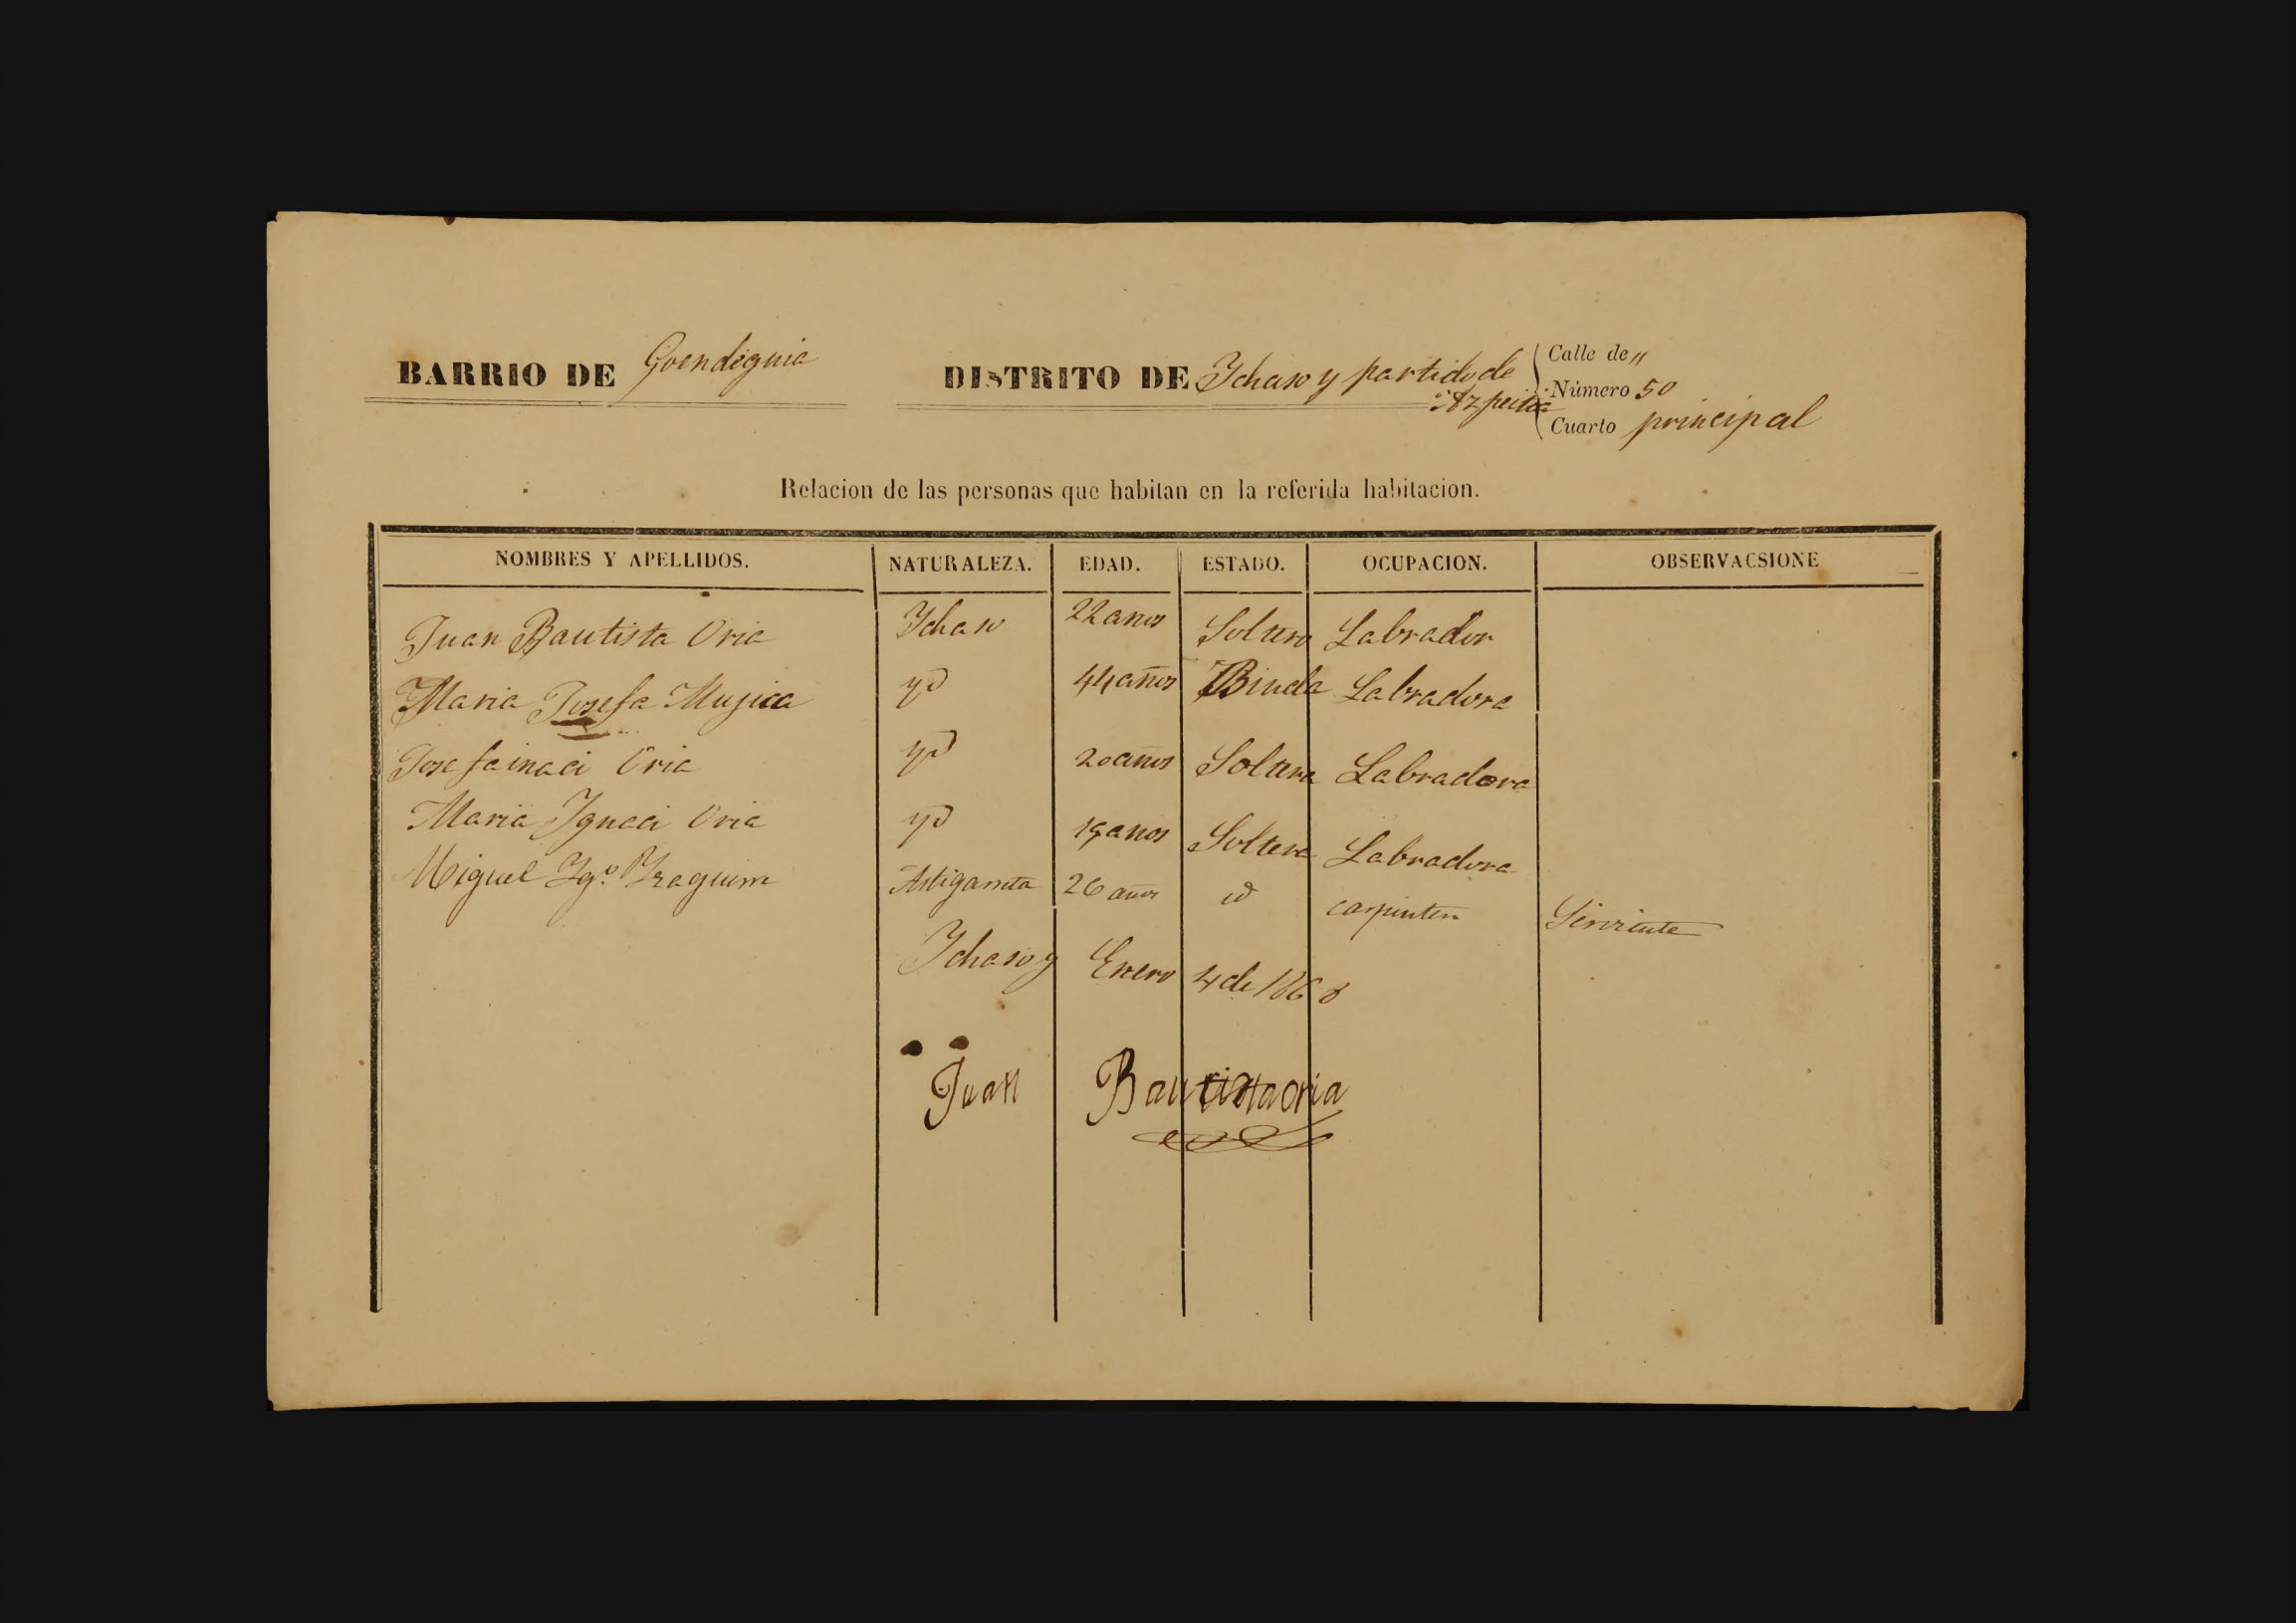 BARRIO DE Goendeguia DISTRITO DE Ychaso y partido de Calle de "
Azpeitia Número 50
Cuarto principal
Relacion de las personas que habitan en la referida habitacion.
NOMBRES Y APELLIDOS. NATURALEZA. EDAD. ESTADO. OCUPACION. OBSERVACSIONE
Juan Bautista Oria Ychaso 22 anos Soltero Labrador
Maria Josefa Mujica yd 44 años Biuda Labradora
Josefainaci Oria yd 20 años Soltera Labradora
Maria Ygnaci Oria yd 19 anos Soltera Labradora
Miguel Ygº Astigarreta 26 años id carpintero Sirviente
Ychaso y Enero 4 de 1868
Juan Bautistaoria